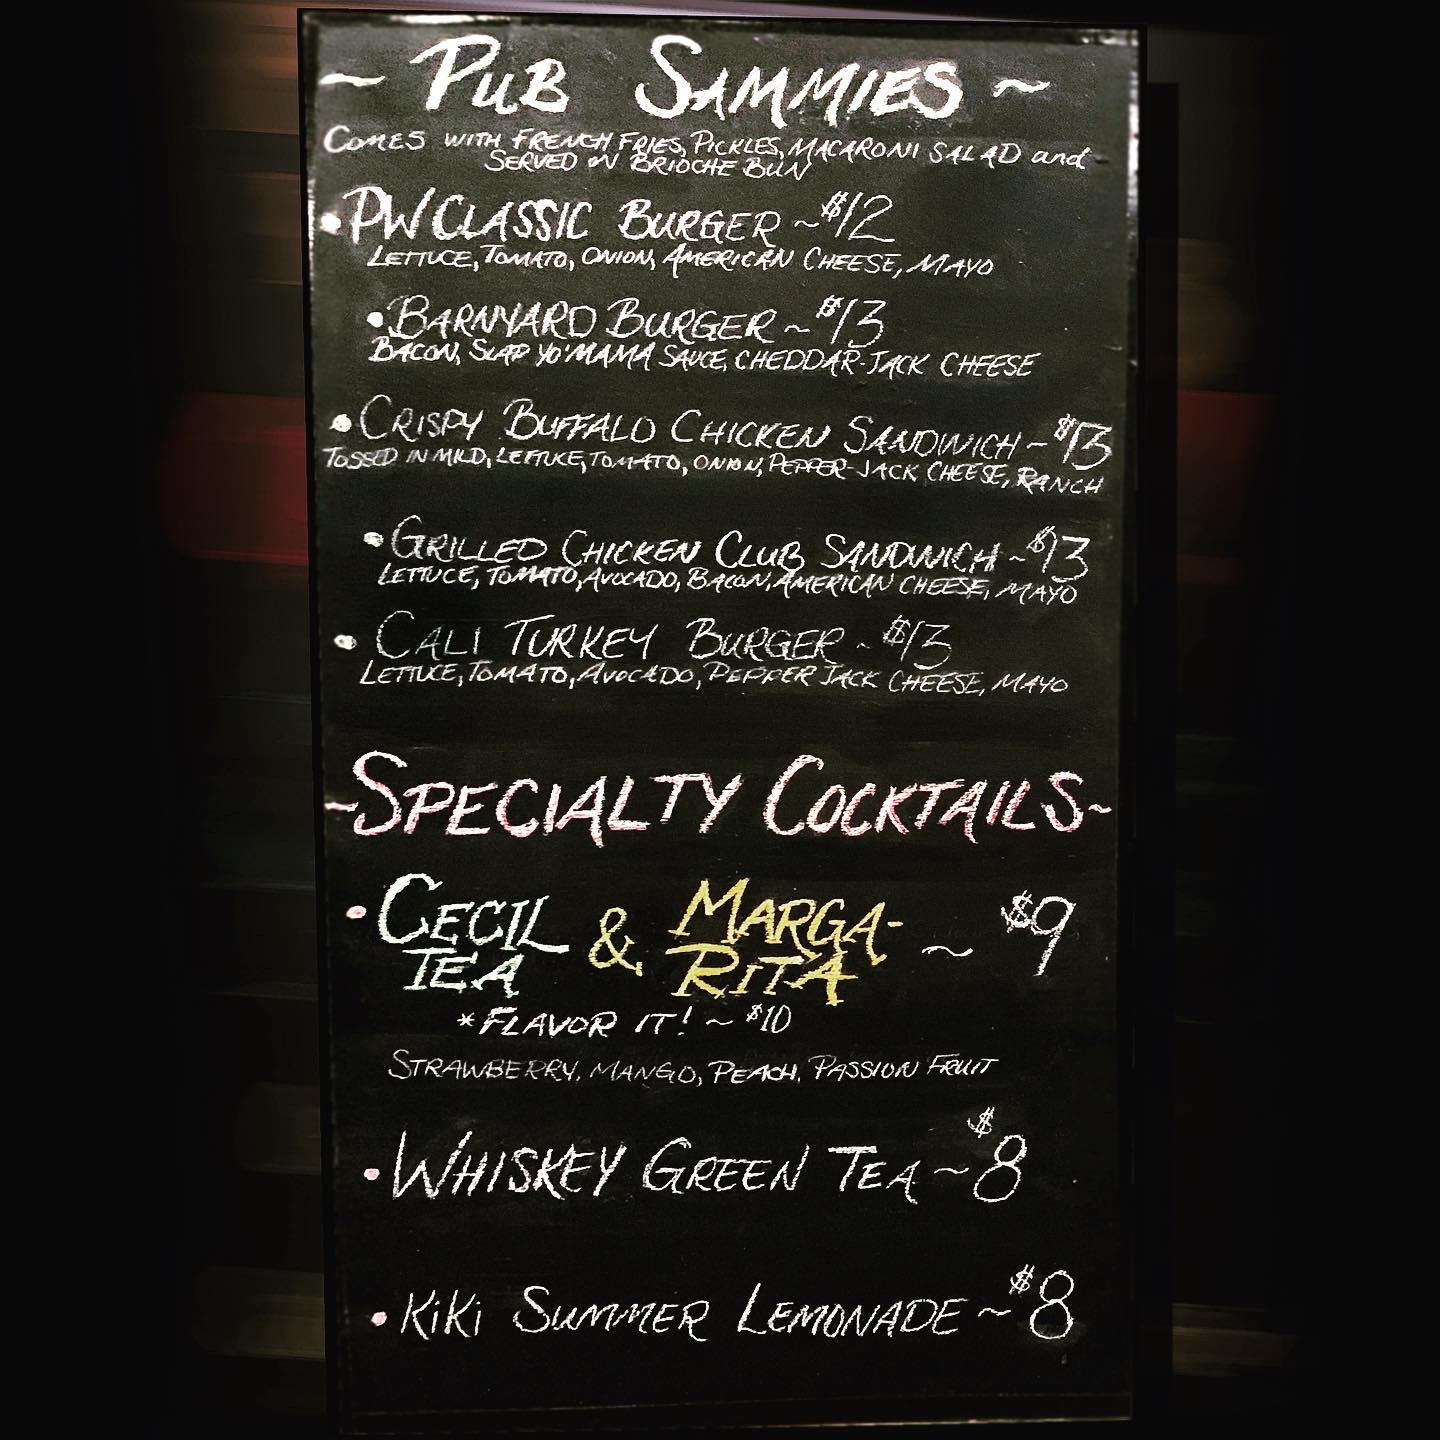 ~ PUB SAMMIES ~
COMES WITH FRENCH FRIES, PICKLES, MACARONI SALAD and
SERVED ON BRIOCHE BUN
• PW CLASSIC BURGER ~ $12
LETTUCE, TOMATO, ONION, AMERICAN CHEESE, MAYO
• BARNYARD BURGER ~ $13
BACON, SLAP YO' MAMA SAUCE, CHEDDAR-JACK CHEESE
• CRISPY BUFFALO CHICKEN SANDWICH ~ $13
TOSSED IN MILD, LETTUCE, TOMATO, ONION, PEPPER-JACK CHEESE, RANCH
• GRILLED CHICKEN CLUB SANDWICH ~ $13
LETTUCE, TOMATO, AVOCADO, BACON, AMERICAN CHEESE, MAYO
• CALI TURKEY BURGER ~ $13
LETTUCE, TOMATO, AVOCADO, PEPPER JACK CHEESE, MAYO
~SPECIALTY COCKTAILS~
• CECIL TEA & MARGA-RITA ~ $9
* FLAVOR IT! ~ $10
STRAWBERRY, MANGO, PEACH, PASSION FRUIT
• WHISKEY GREEN TEA ~ $8
• KiKi SUMMER LEMONADE ~ $8